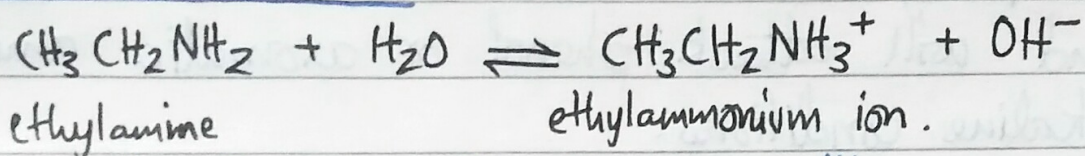 CH₃CH₂NH₂ + H₂O ⇌ CH₃CH₂NH₃⁺ + OH⁻
ethylamine ethylammonium ion.